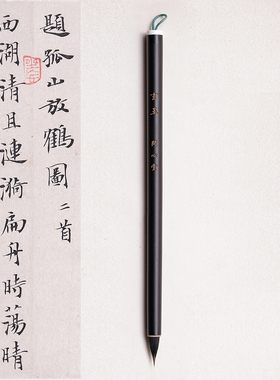 題孤山放鶴圖二首
西湖清且漣漪扁舟時蕩晴